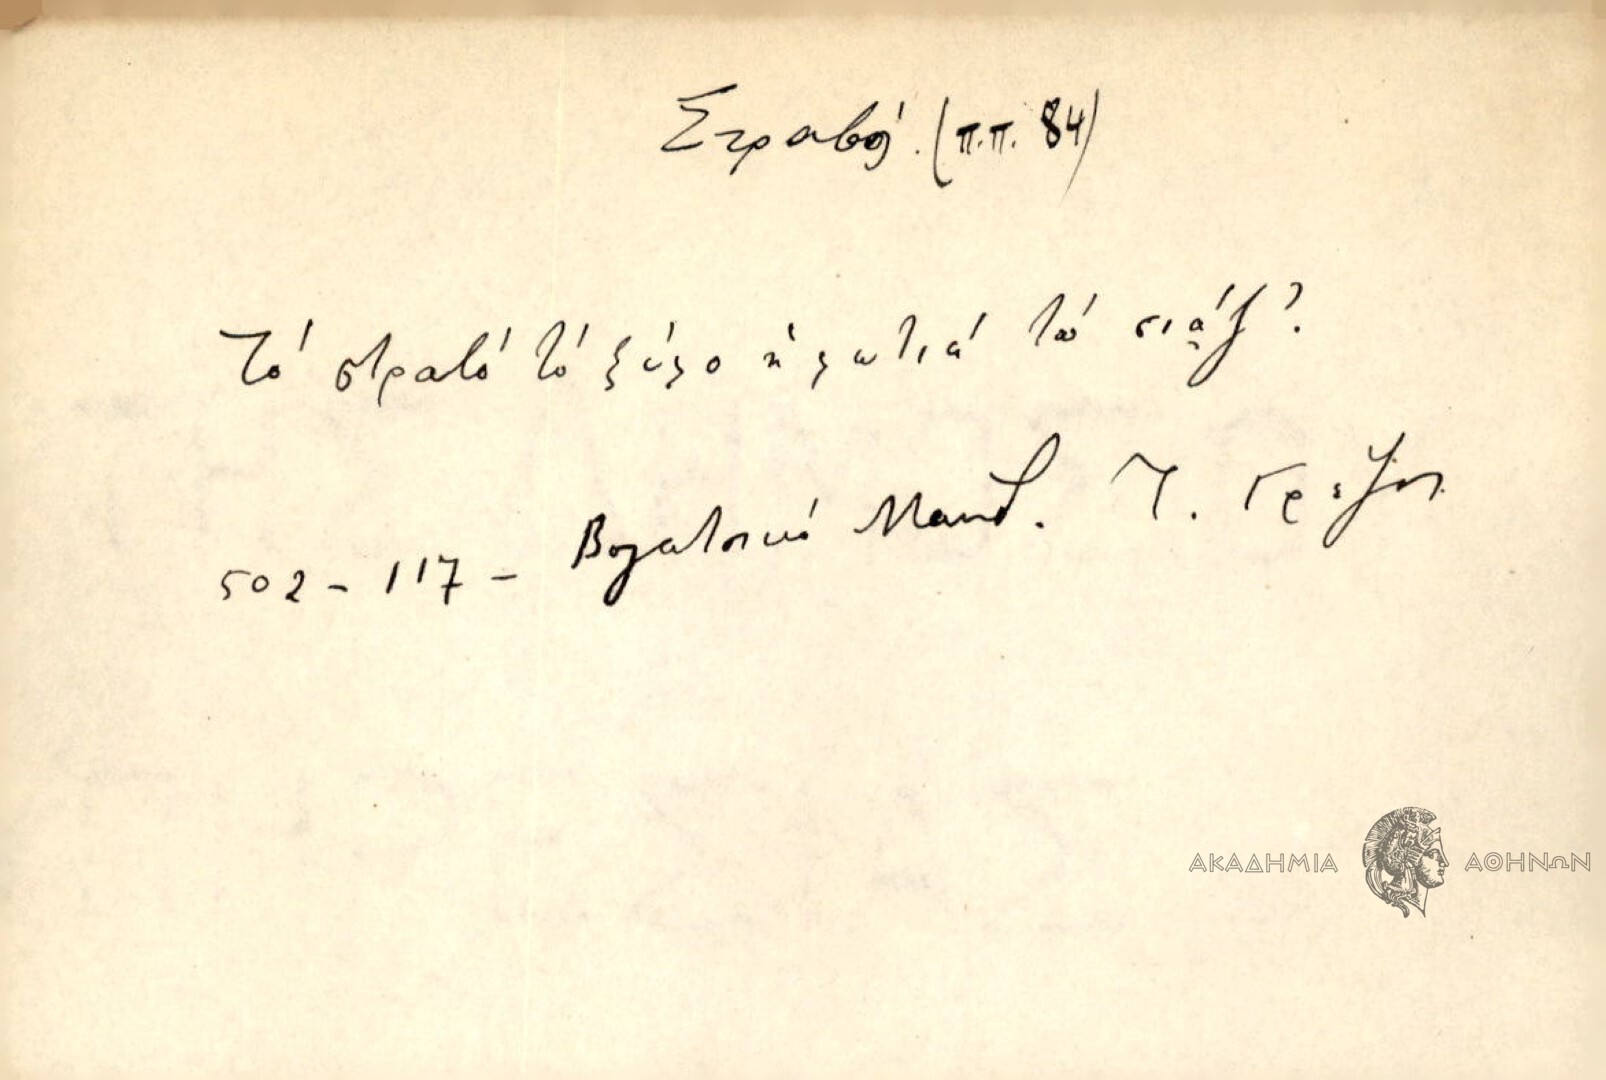 Στραβό. (π.π. 84)
Τό στραβό τό ξύλο ἡ φωτιά τό σιάζ'.
502 - 117 - Βογατσικό Μακεδ. Τ. Γρ.
ΑΚΑΔΗΜΙΑ ΑΘΗΝΩΝ